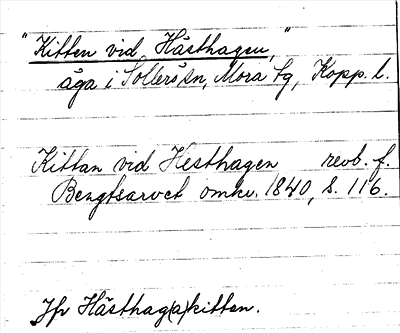 "Kitten vid Hästhagen,"
äga i Sollerö sn, Mora tg, Kopp. l.
Kittan vid Hesthagen revb. f.
Bengtsarvet omkr. 1840, s. 116.
Jfr Hästhag(a)kitten.